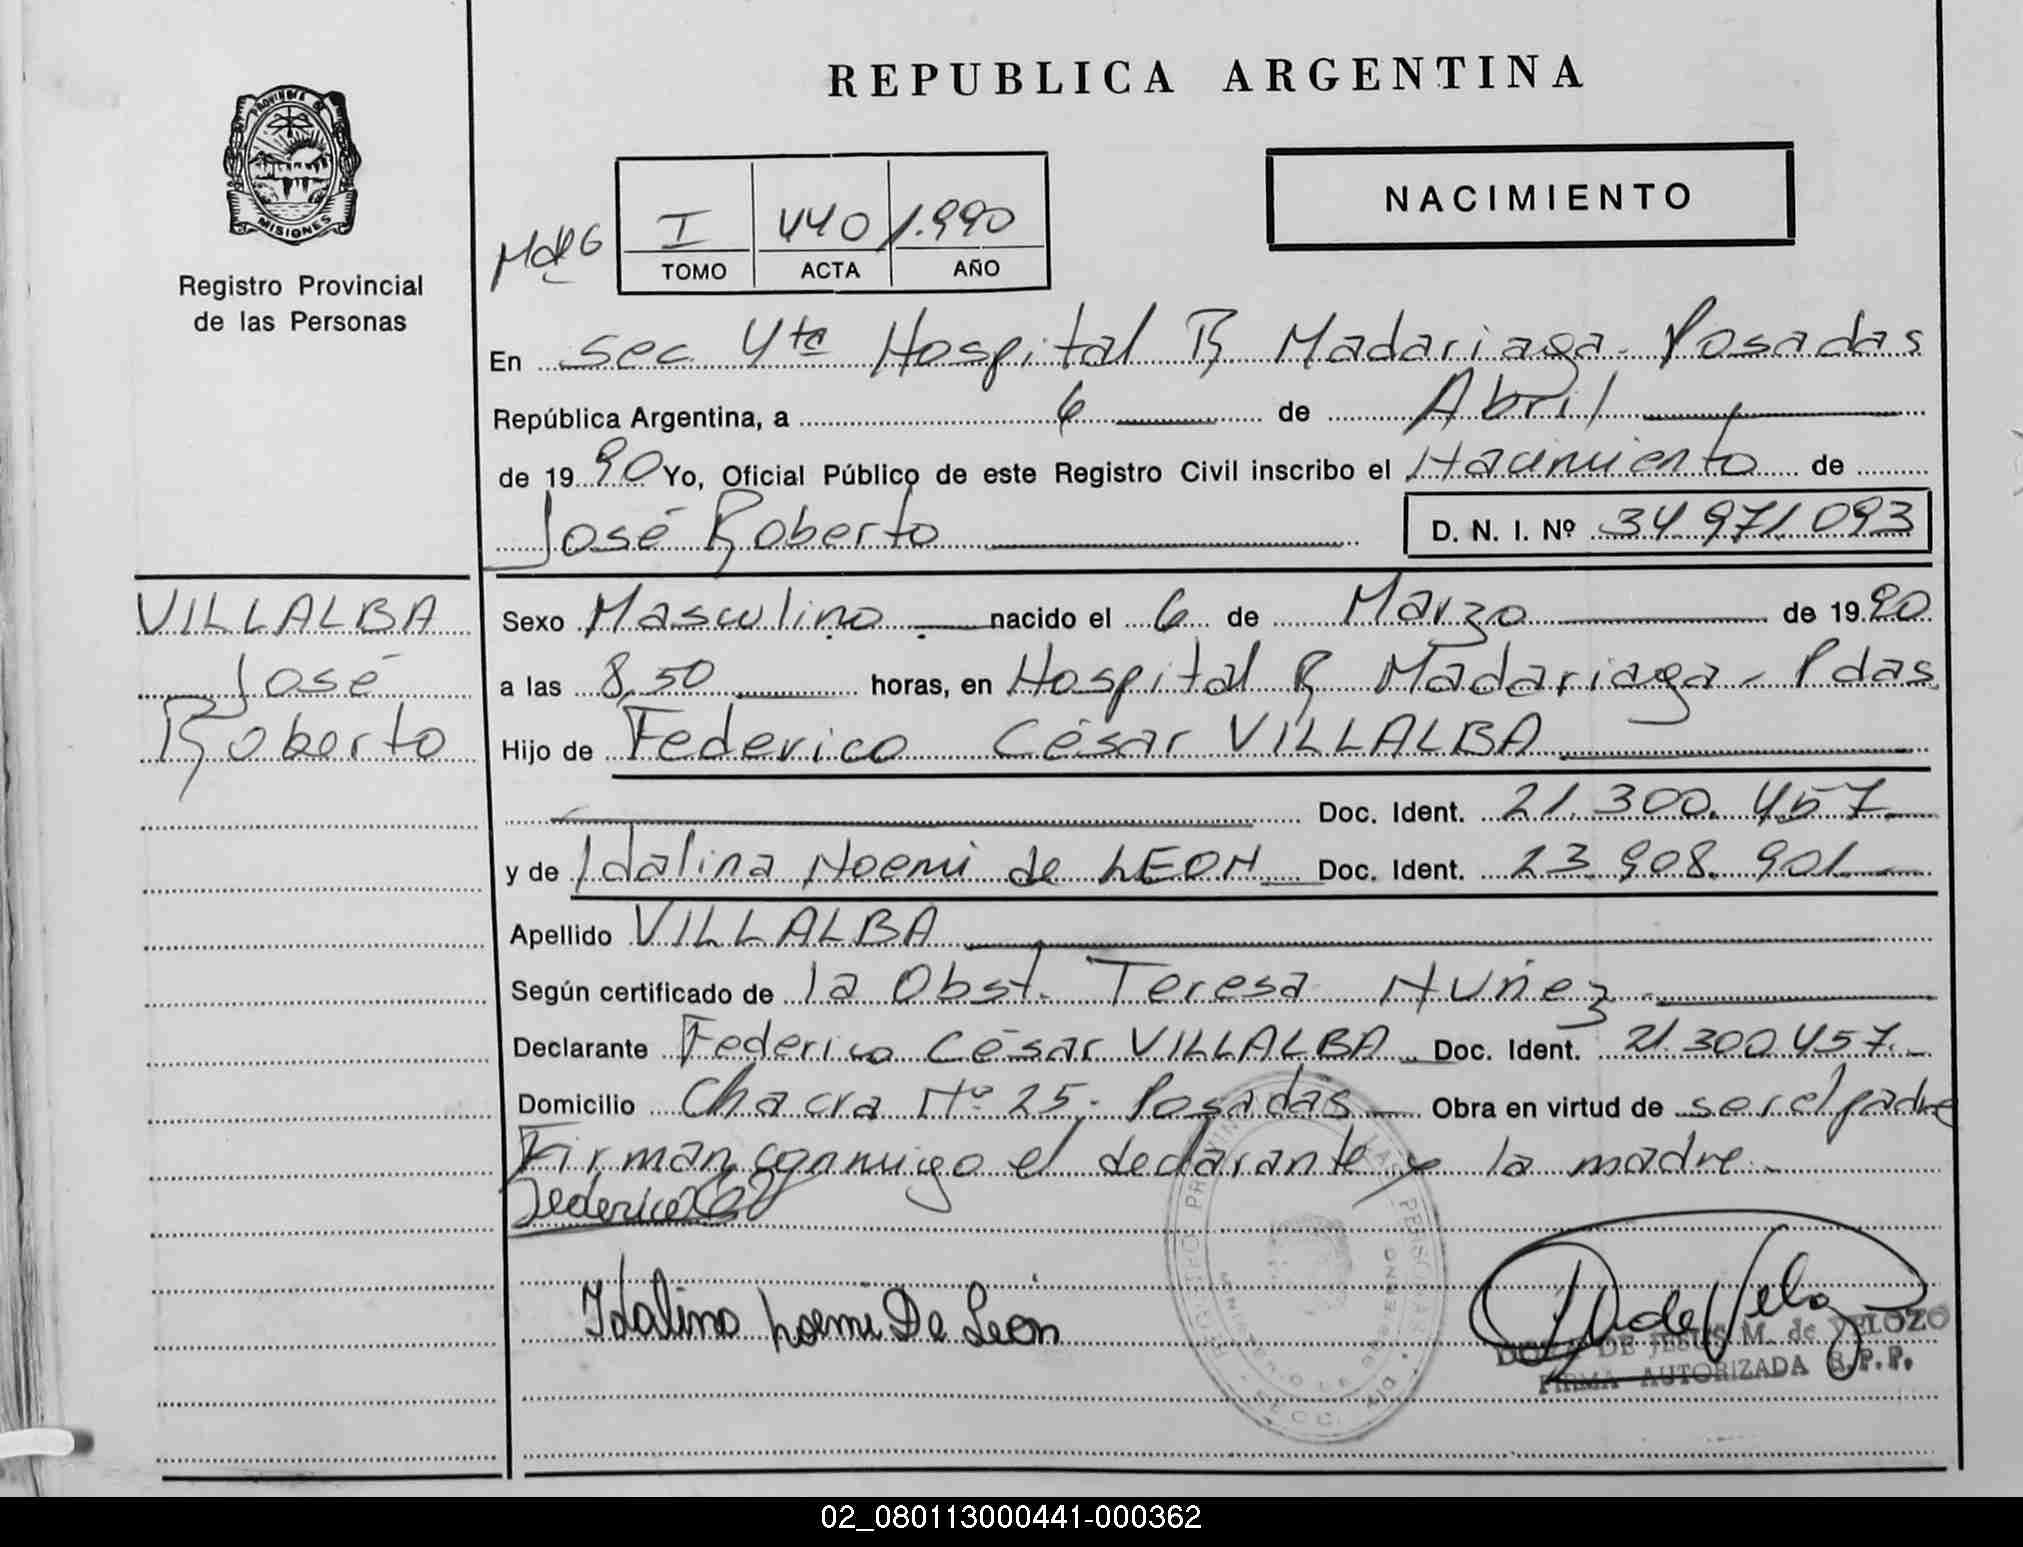 REPUBLICA ARGENTINA
PROVINCIA DE
MISIONES
Registro Provincial
de las Personas
NACIMIENTO
I 440 1.990
TOMO ACTA AÑO
En Sec 4ta Hospital R Madariaga - Posadas
República Argentina, a 6 de Abril
de 1990 Yo, Oficial Público de este Registro Civil inscribo el Nacimiento de
José Roberto D. N. I. Nº 34.971.093
VILLALBA
José
Roberto
Sexo Masculino nacido el 6 de Marzo de 1990
a las 8,50 horas, en Hospital R Madariaga - Pdas
Hijo de Federico César VILLALBA
Doc. Ident. 21.300.457
y de Idalina Noemi de LEON Doc. Ident. 23.908.901
Apellido VILLALBA
Según certificado de la Obst. Teresa Nuñez
Declarante Federico César VILLALBA Doc. Ident. 21.300.457
Domicilio Chacra Nº 25 - Posadas Obra en virtud de ser el padre
Firman conmigo el declarante y la madre
Federico
Idalina Noemi De León
DORA DE JESUS M. de VELOZO
FIRMA AUTORIZADA R.P.P.
02_080113000441-000362